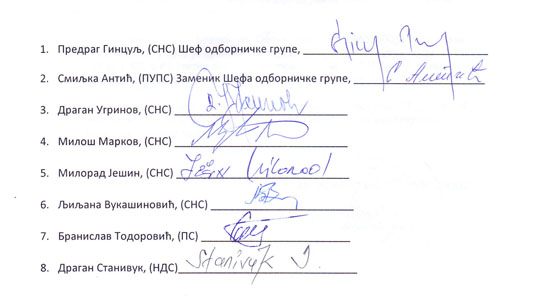 1. Предраг Гинцуљ, (СНС) Шеф одборничке групе,
2. Смиљка Антић, (ПУПС) Заменик Шефа одборничке групе, С Антић
3. Драган Угринов, (СНС)
4. Милош Марков, (СНС)
5. Милорад Јешин, (СНС)
6. Љиљана Вукашиновић, (СНС)
7. Бранислав Тодоровић, (ПС)
8. Драган Станивук, (НДС) Stanivuk D.